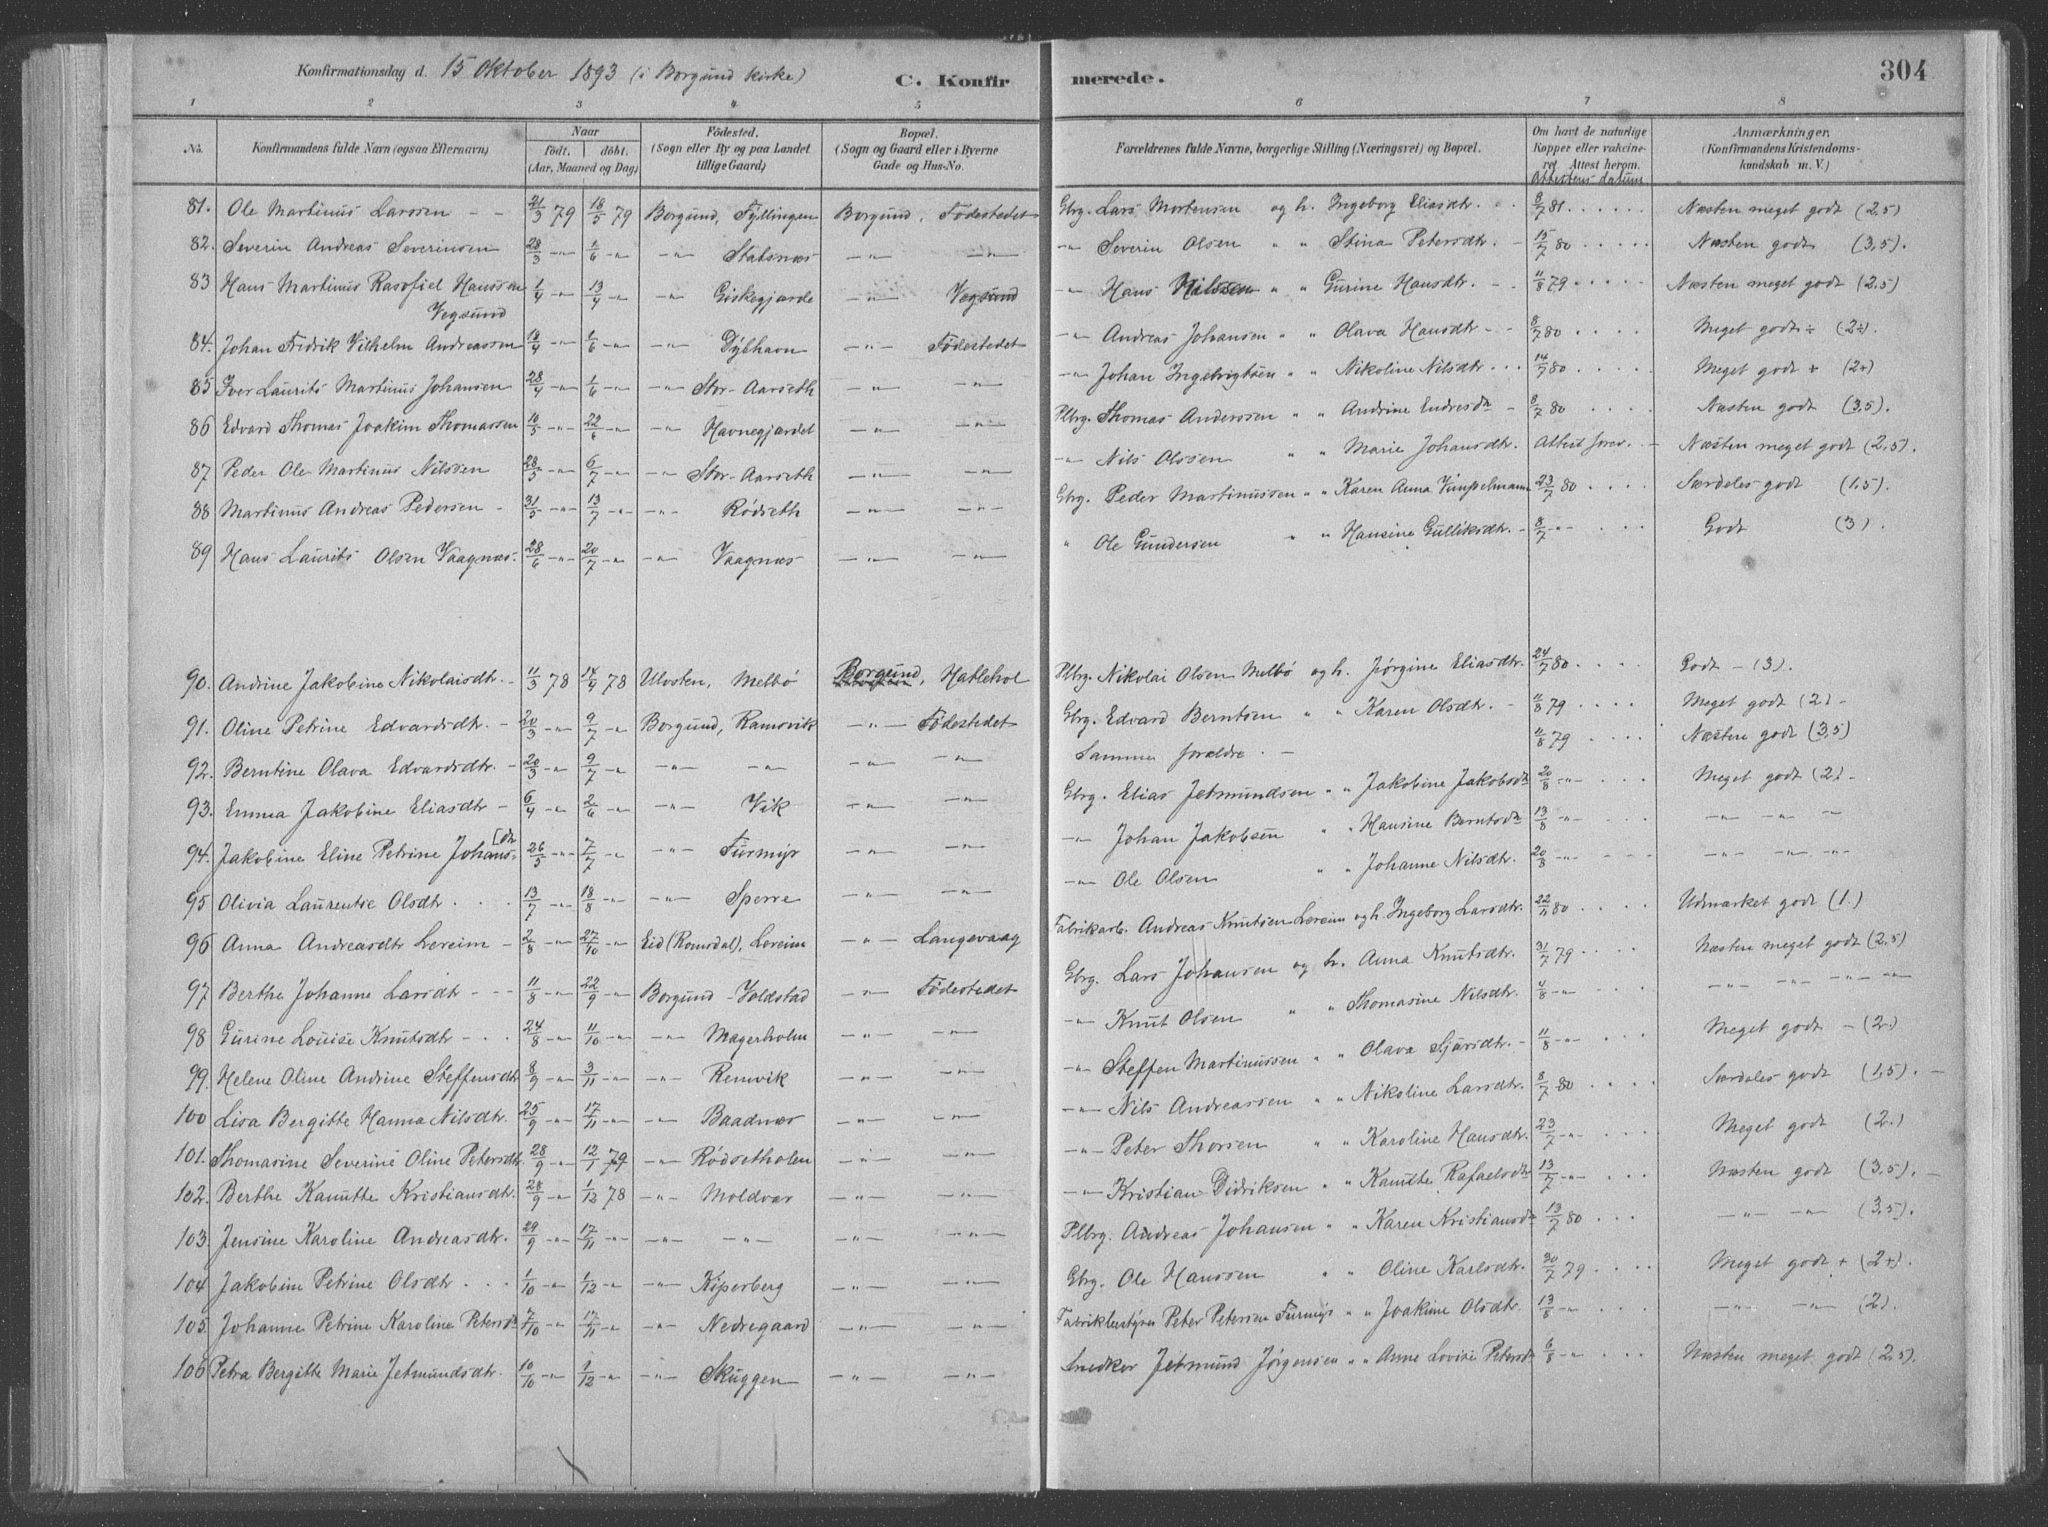 Konfirmationsdag d. 15 Oktober 1893 (i Borgund Kirke) C. Konfirmerede. 304
1 2 3 4 5 6 7 8
No. Konfirmandens fulde Navn (ogsaa Efternavn) Naar født. døbt. (Aar, Maaned og Dag) Fødested. (Sogn eller By og paa Landet tillige Gaard) Bopæl. (Sogn og Gaard eller i Byerne Gade og Hus-No. Forældrenes fulde Navne, borgerlige Stilling (Næringsvei) og Bopæl. Om havt de naturlige Kopper eller vakcineret Attest herom. Attestens datum Anmærkninger. (Konfirmandens Kristendomskundskab m. V.)
81. Ole Martinus Larssen 21/3 79 18/5 79 Borgund, Fyllingen Borgund, Fødestedet Gbrg. Lars Mortensen og h. Ingeborg Eliasdtr. 8/7 81 Næsten meget godt (2,5)
82. Severin Andreas Severinsen 28/3 -"- 1/6 -"- -"- Statsnæs -"- -"- -"- Severin Olsen " " Stina Petersdtr. 15/7 80 Næsten godt (3,5).
83 Hans Martinus Rasofiel Hanssen Vegsund 1/4 -"- 13/4 -"- -"- Giskegjærde -"- Vegsund -"- Hans Nilssen " " Gurine Hansdtr. 11/8 79 Næsten meget godt (2,5)
84. Johan Fredrik Vilhelm Andreassen 18/4 -"- 1/6 -"- -"- Dybhavn -"- Fødestedet -"- Andreas Johansen " " Olava Hansdtr 8/7 80 Meget godt ÷ (2÷).
85 Iver Laurits Martinus Johansen 28/4 -"- 1/6 -"- -"- Stor-Aarseth -"- -"- -"- Johan Ingebrigtsen " " Nikoline Nilsdtr 14/7 80 Meget godt + (2+)
86 Edvard Thomas Joakim Thomassen 10/5 -"- 22/6 -"- -"- Havnegjærdet -"- -"- Plbrg. Thomas Anderssen " " Andrine Endresdtr 8/7 80 Næsten godt (3,5).
87 Peder Ole Martinus Nilssen 28/5 -"- 6/7 -"- -"- Stor-Aarseth -"- -"- -"- Nils Olssen " " Marie Johansdtr. Attest forev. Næsten meget godt (2,5).
88 Martinus Andreas Pedersen 31/5 -"- 13/7 -"- -"- Rødseth -"- -"- Gbrg. Peder Martinussen " " Karen Anna Vimpelmann 23/7 80 Særdeles godt (1,5)
89 Hans Laurits Olsen Vaagnæs. 28/6 -"- 20/7 -"- -"- Vaagnæs -"- -"- " Ole Gundersen " " Hansine Gulliksdtr. 8/7 -"- Godt (3).
90. Andrine Jakobine Nikolaisdtr. 11/3 78 14/4 78 Ulvsten, Melbø Borgund, Hatlehol Plbrg. Nikolai Olsen Melbø og h. Jørgine Eliasdtr. 24/7 80 Godt - (3).
91. Oline Petrine Edvardsdtr. 20/3 -"- 9/7 -"- Borgund, Ramsvik -"- Fødestedet Gbrg. Edvard Berntsen " " Karen Olsdtr. 11/8 79 Meget godt (2)
92. Berntine Olava Edvardsdtr. 20/3 -"- 9/7 -"- -"- -"- -"- -"- Samme forældre 11/8 79 Næsten godt (3,5)
93. Emma Jakobine Eliasdtr 6/4 -"- 2/6 -"- -"- Vik -"- -"- Gbrg. Elias Jetmundsen " " Jakobine Jakobsdtr 20/8 -"- Meget godt (2)
94. Jakobine Eline Petrine Johansdtr 26/5 -"- 7/7 -"- -"- Furmyr -"- -"- -"- Johan Jakobsen " " Hansine Berntsdtr 13/8 -"- -"- -"- -"-
95 Olivia Laurentse Olsdtr. 13/7 -"- 18/8 -"- -"- Sperre -"- -"- -"- Ole Olsen " " Johanne Nilsdtr. 20/8 -"- -"- -"- -"-
96 Anna Andreasdtr Lereim 2/8 -"- 27/10 -"- Eid (Romsdal), Lereim -"- Langevaag Fabrikarb. Andreas Knutsen Lereim og h. Ingeborg Larsdtr. 22/11 80 Udmærket godt (1)
97 Berthe Johanne Larsdtr 11/8 -"- 22/9 -"- Borgund - Voldstad -"- Fødestedet Gbrg. Lars Johansen og h. Anna Knutsdtr. 31/7 79 Næsten meget godt (2,5)
98 Gurine Louise Knutsdtr 24/8 -"- 11/10 -"- -"- Magerholm -"- -"- -"- Knut Olsen " " Thomasine Nilsdtr. 4/8 -"- -"- -"- -"- -"-
99. Helene Oline Andrine Steffensdtr 8/9 -"- 3/11 -"- -"- Remvik -"- -"- -"- Steffen Martinussen " " Olava Sjursdtr. 11/8 -"- Meget godt - (2)
100 Lisa Bergitte Hanna Nilsdtr. 25/9 -"- 17/11 -"- -"- Baadnæs -"- -"- -"- Nils Andreassen " " Nikoline Larsdtr. 8/7 80 Særdeles godt (1,5).
101. Thomasine Severine Oline Petersdtr 28/9 -"- 12/1 79 -"- Rødsetholen -"- -"- -"- Peter Thorsen " " Karoline Hansdtr. 23/7 -"- Meget godt (2)
102. Berthe Kanutte Kristiansdtr. 28/9 -"- 1/12 78 -"- Moldvær -"- -"- -"- Kristian Didriksen " " Kanutte Rafaelsdtr 13/7 -"- Næsten godt (3,5).
103. Jensine Karoline Andreasdtr. 29/9 -"- 17/11 -"- -"- -"- -"- -"- Plbrg. Andreas Johansen " " Karen Kristiansdtr 13/7 80 -"- -"- (3,5).
104 Jakobine Petrine Olsdtr 1/10 -"- 1/12 -"- -"- Kiperberg -"- -"- Gbrg. Ole Hanssen " " Oline Karlsdtr. 30/7 79 Meget godt + (2+).
105. Johanne Petrine Karoline Petersdtr 7/10 -"- 17/11 -"- -"- Nedregaard -"- -"- Fabrikbestyrer Peter Petersen Furmyr " " Joakime Olsdtr. 13/8 -"- -"- -"- (2)
106 Petra Bergitte Marie Jetmundsdtr. 10/10 -"- 1/12 -"- -"- Skuggen -"- -"- Snedker Jetmund Jørgensen " " Anne Lovise Petersdtr 6/8 -"- Næsten meget godt (2,5).